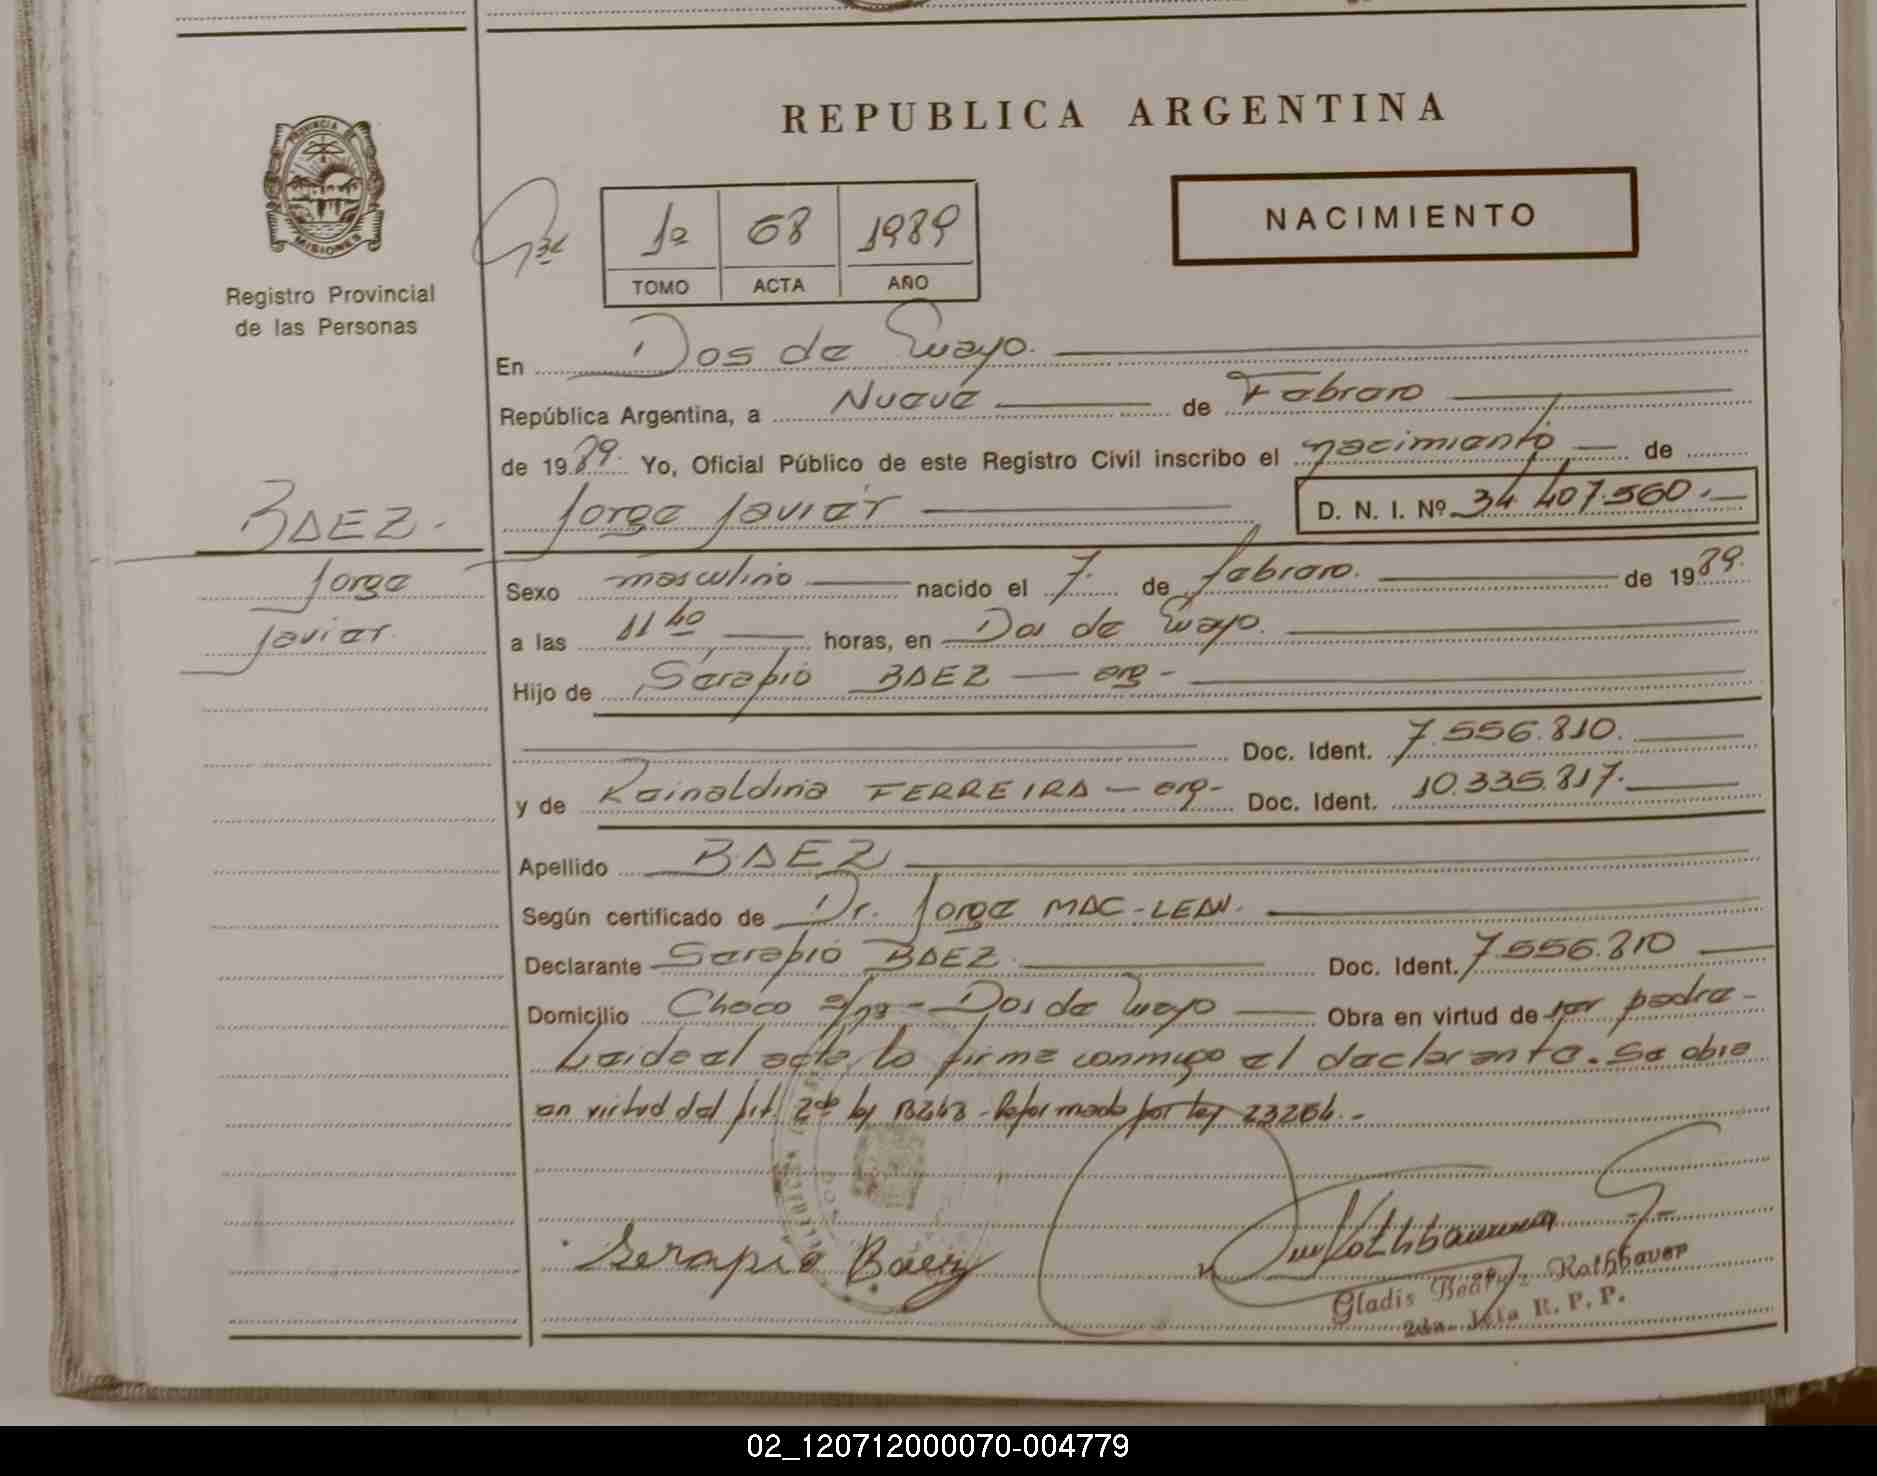 REPUBLICA ARGENTINA
PROVINCIA DE
MISIONES
Registro Provincial
de las Personas
NACIMIENTO
1º 68 1989
TOMO ACTA AÑO
En Dos de Mayo.
República Argentina, a Nueve de Febrero
de 1989. Yo, Oficial Público de este Registro Civil inscribo el nacimiento de
BAEZ.
Jorge Javier D. N. I. Nº 34.407.560.
Jorge
Javier.
Sexo masculino nacido el 7. de febrero. de 1989.
a las 11 40 horas, en Dos de Mayo.
Hijo de Serapio BAEZ — arg -
Doc. Ident. 7.556.810.
y de Reinaldina FERREIRA — arg- Doc. Ident. 10.335.817.
Apellido BAEZ
Según certificado de Dr. Jorge MAC-LEAN.
Declarante Serapio BAEZ Doc. Ident. 7.556.810
Domicilio Chaco s/nº - Dos de Mayo Obra en virtud de ser padre-
Leida el acta, la firma conmigo el declarante. Se obra
en virtud del Art. 2do ley 18248 - Reformado por ley 23264.-
Serapio Báez
Gladis Beatriz Rothbauer
2da. Jefa R. P. P.
02_120712000070-004779